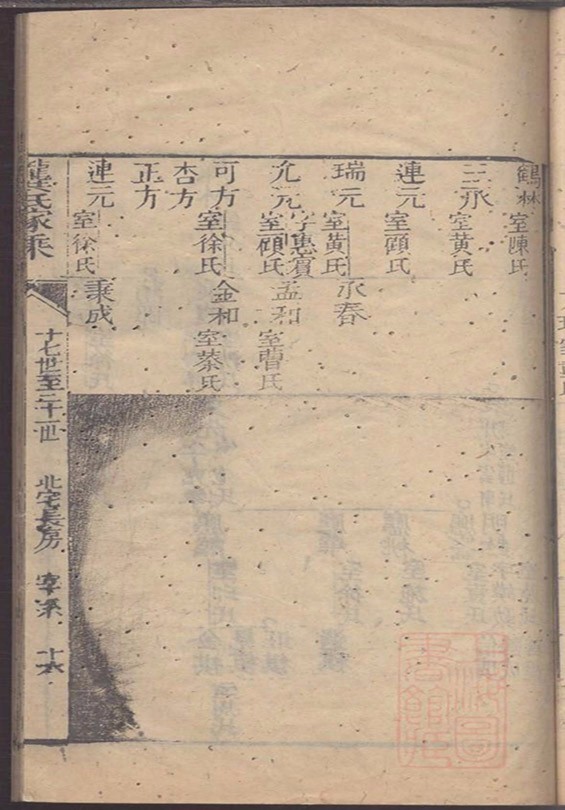 鶴林 室陳氏
三承 室黄氏
連元 室顧氏
瑞元 室黄氏 永春
允元 字惠賓 室顧氏 孟和 室曹氏
可方 室徐氏 金和 室蔡氏
杏方
正方
連元 室徐氏 秉成
氏家乘 十七世至二十一世 北宅長房 宰系